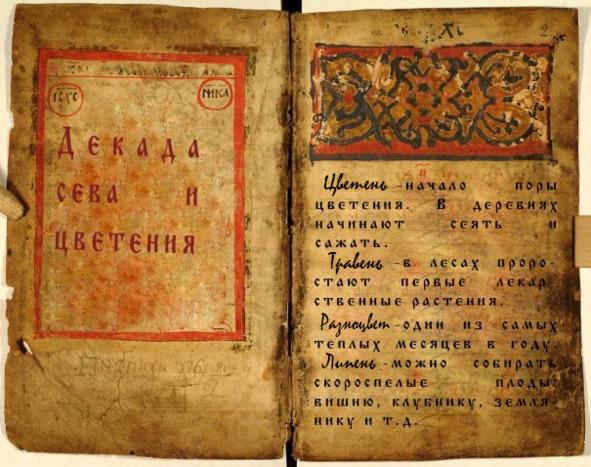 ІС ХС
НИКА
Декада
сева и
цветения
Цветень -начало поры
цветения. В деревнях
начинают сеять и
сажать.
Травень -в лесах проро-
стают первые лекар-
ственные растения.
Разноцвет -один из самых
теплых месяцев в году.
Липень -можно собирать
скороспелые плоды:
вишню, клубнику, земля-
нику и т.д.